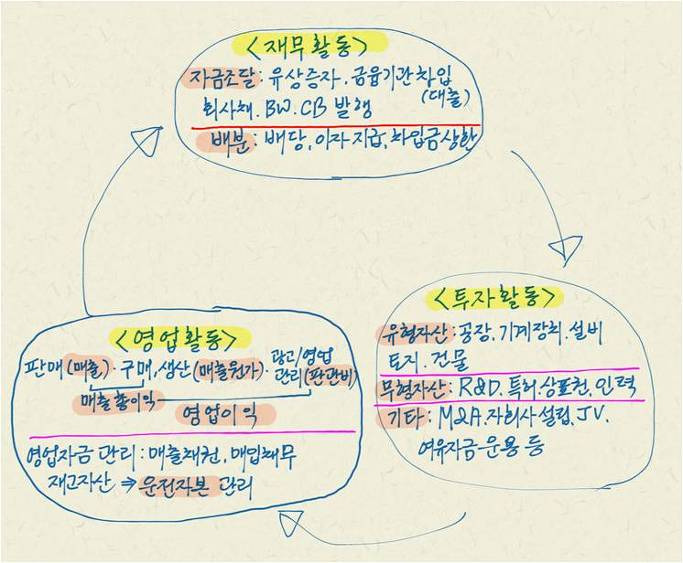 <재무활동>
자금조달: 유상증자. 금융기관 차입
(대출)
회사채. BW. CB 발행
배분: 배당, 이자지급, 차입금상환
<투자활동>
유형자산: 공장. 기계장치. 설비
토지. 건물
무형자산: R&D. 특허. 상표권, 인력
기타: M&A. 자회사설립, JV.
여유자금 운용 등
<영업활동>
판매(매출). 구매, 생산(매출원가). 광고/영업
관리(판관비)
매출총이익
영업이익
영업자금 관리: 매출채권, 매입채무
재고자산 ⇒ 운전자본 관리